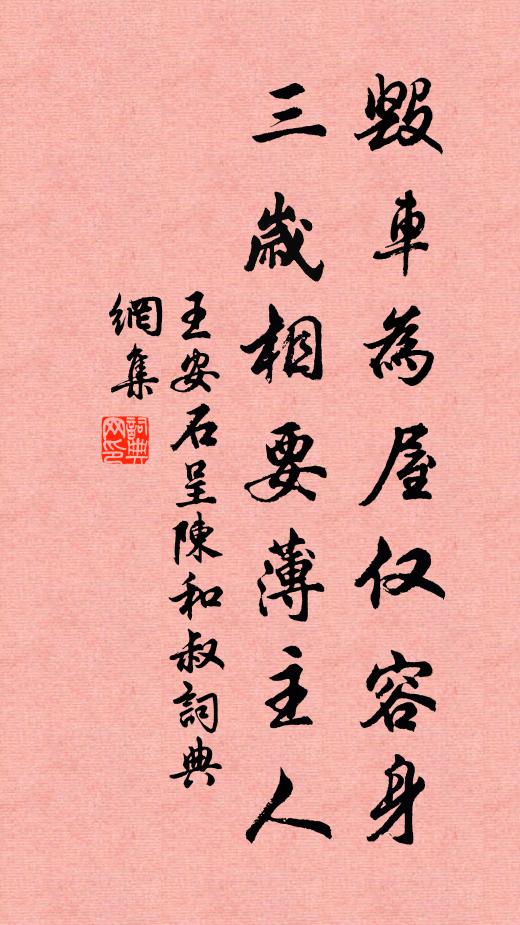 毀車為屋仅容身
三歲相要薄主人
王安石呈陳和叔詞典
網集
詞典
网印